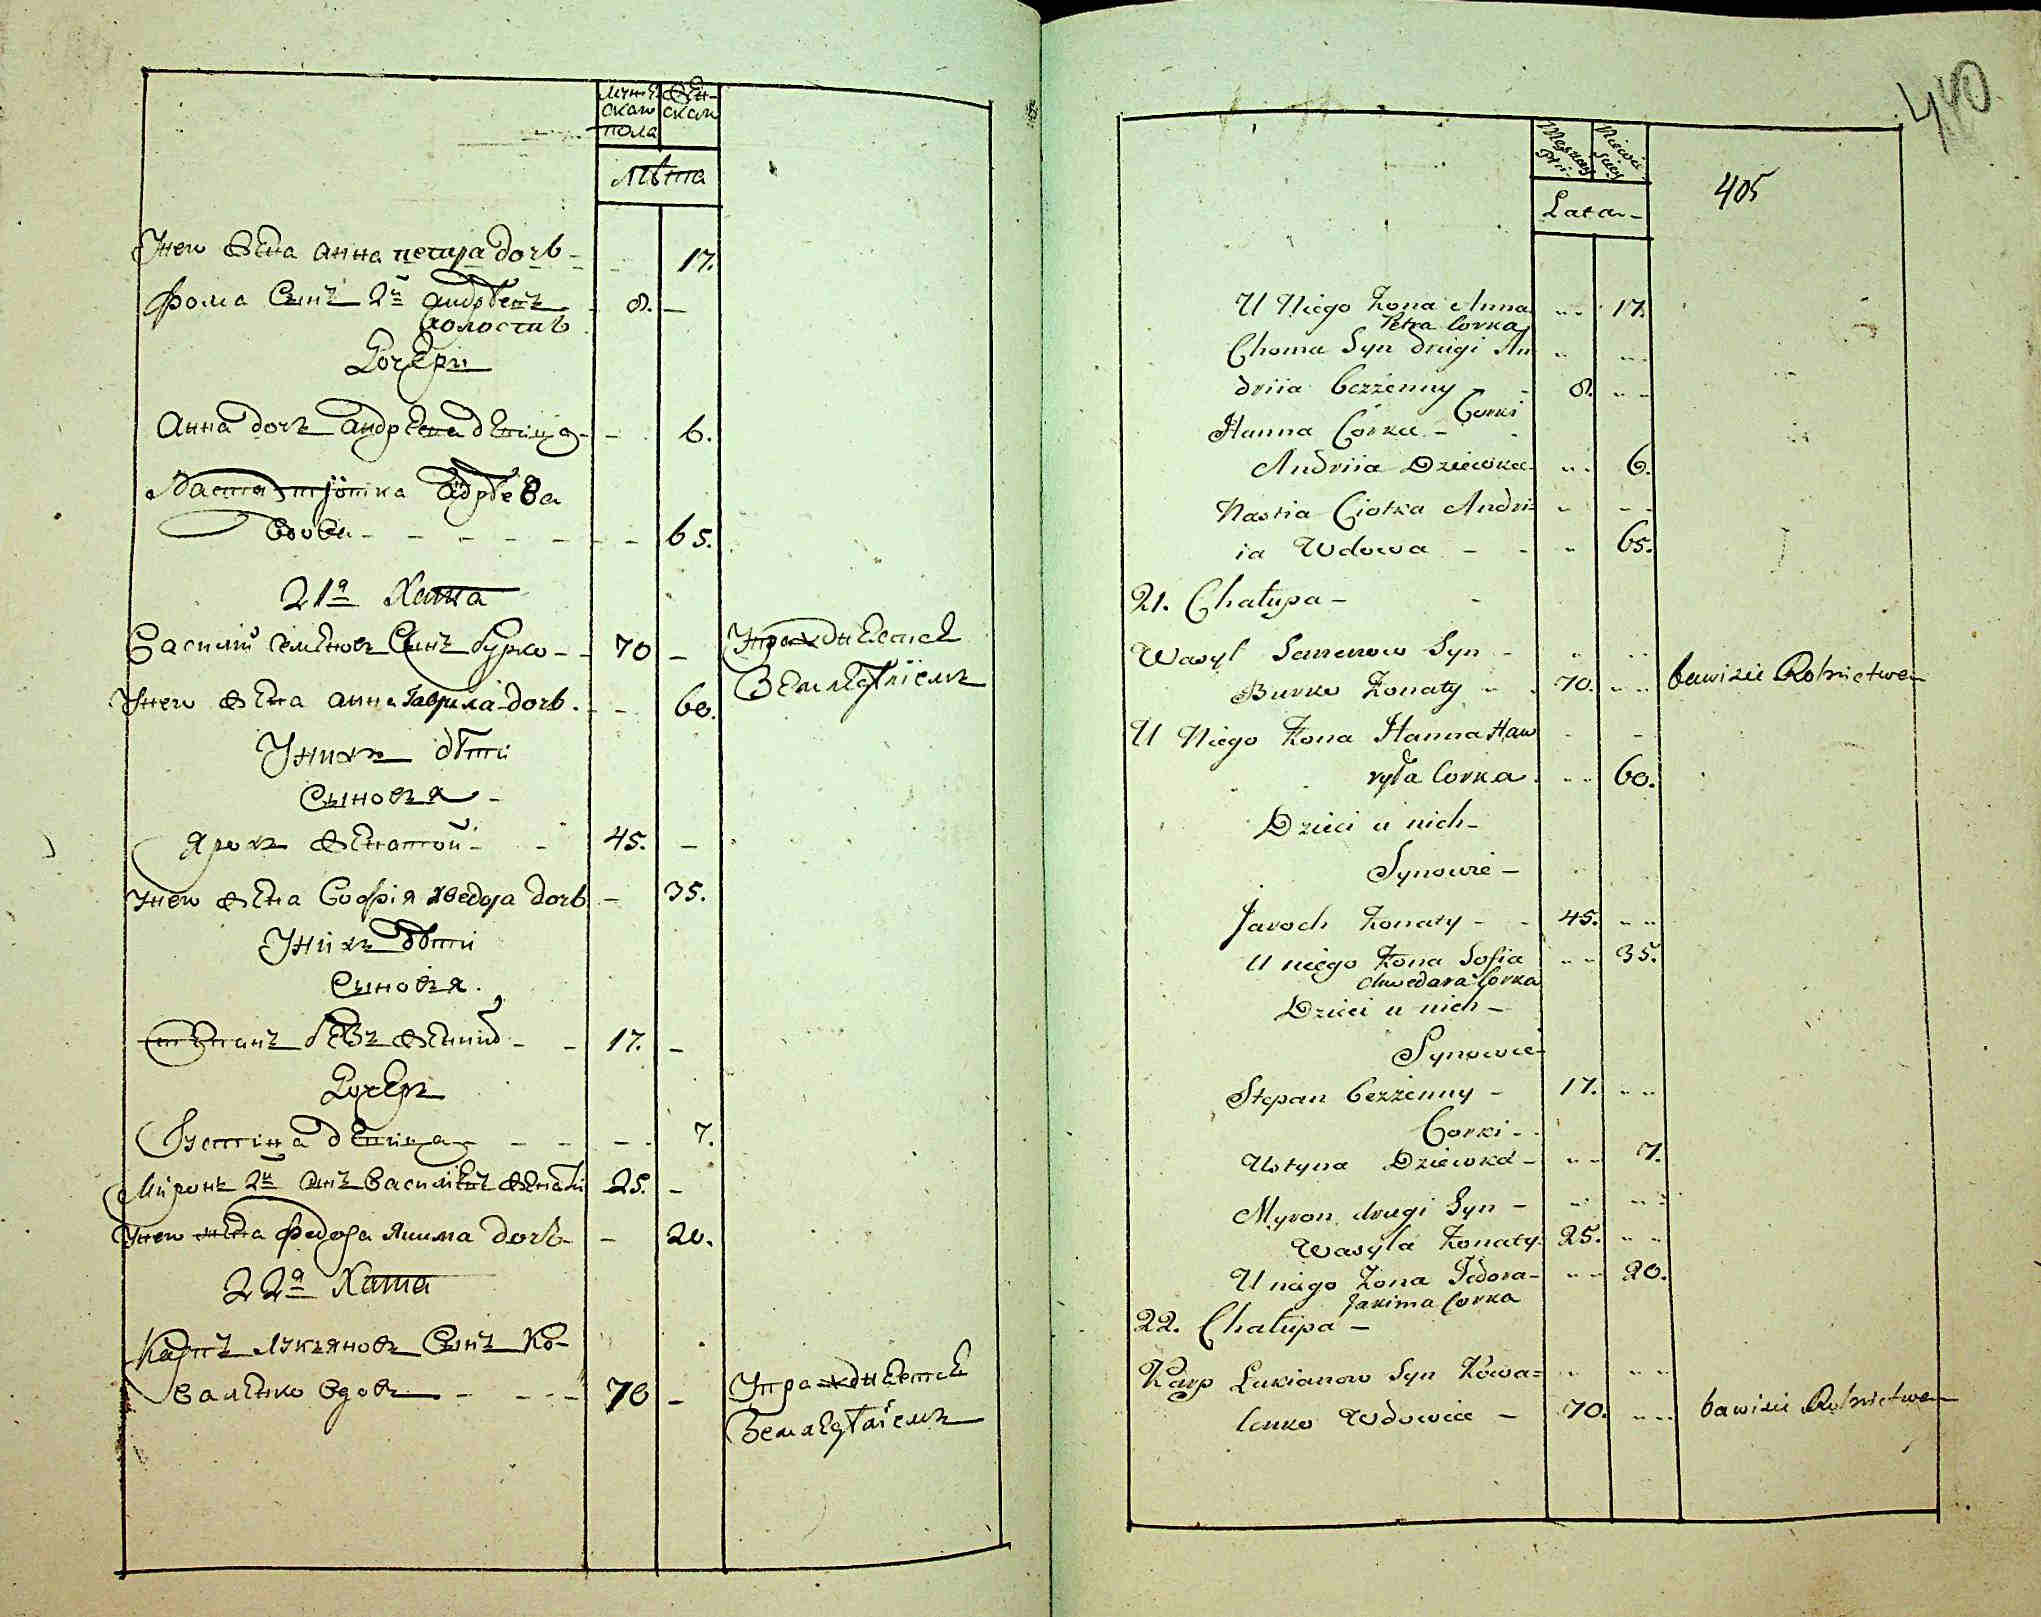 Мужескаго пола Женскаго
Лѣта
У него жена Анна Петра дочь - 17.
Фома сынъ 2й Андрѣевъ 8. -
холостъ
Дочери
Анна дочь Андрѣева дѣвица - - 6.
Настя тіотка Андрѣева
вдова - - - - - - - 65.
21я Хата
Василий Семеновъ сынъ Бурко - - 70 - Упражняется
У него жена Анна Гаврила дочь. - - 60. Земледѣліемъ
У нихъ дѣти
Сыновья -
Ярохъ женатой - - 45. -
У него жена Софія Хведора дочь - 35.
У нихъ дѣти
Сыновья.
Степанъ безъ жены - - 17. -
Дочерь
Устина дѣвица - - - - - 7.
Миронъ 2й сынъ Василіевъ женатъ 25. -
У него жена Федора Якима дочь - - 20.
22я Хата
Карпъ Лукьяновъ сынъ Ко-
валенко вдовъ - - - - 70 - Упражняется
Земледѣліемъ
440
405
Męszczey Płci Niewieściey
Lata -
U Niego Żona Anna 17.
Petra Corka
Choma Syn drugi An
driia bezżenny - - 8.
Corki
Hanna Córka -
Andriia Dziewka - 6.
Nastia Ciotka Andri-
ia Wdowa - - 65.
21. Chałupa -
Wasyl Semenow Syn -
Burko Żonaty 70. bawi sie Rolnictwem
U Niego Żona Hanna Haw
ryła Corka 60.
Dzieci u nich -
Synowie -
Jaroch Żonaty - - 45.
U niego Żona Sofia 35.
Chwedara Corka
Dzieci u nich -
Synowie -
Stepan bezżenny - 17.
Corki - .
Ustyna Dziewka - 7.
Myron drugi Syn -
Wasyla Żonaty 25.
U niego Żona Fedora - 20.
Jakima Corka
22. Chałupa -
Karp Lukianow Syn Kowa=
lenko Wdowiec - 70. bawi sie Rolnictwem